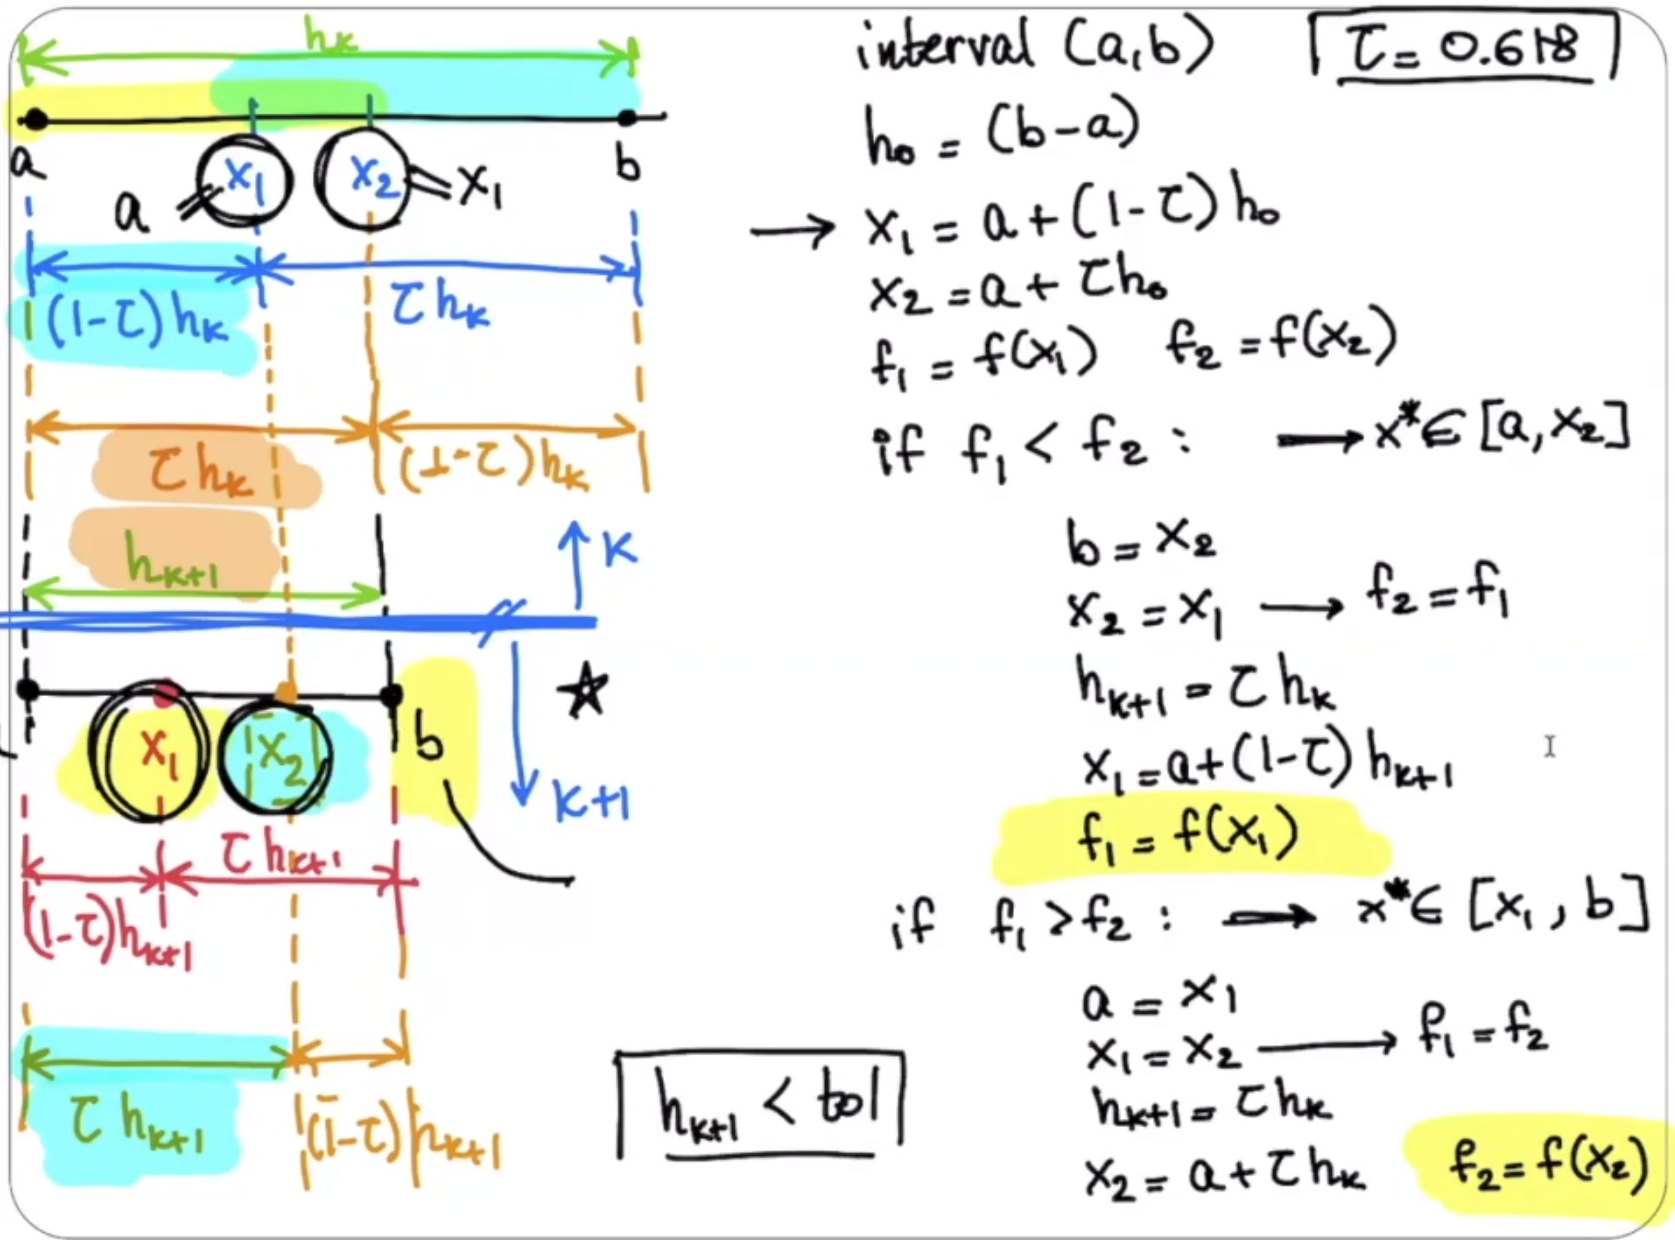 h_k
a
x_1
x_2
b
a
x_1
(1-τ)h_k
τh_k
τh_k
(1-τ)h_k
h_{k+1}
k
x_1
x_2
b
k+1
τh_{k+1}
(1-τ)h_{k+1}
τh_{k+1}
(1-τ)h_{k+1}
h_{k+1} < tol
interval (a,b)
τ = 0.618
h_0 = (b-a)
→ x_1 = a + (1-τ)h_0
x_2 = a + τh_0
f_1 = f(x_1) f_2 = f(x_2)
if f_1 < f_2 : → x* ∈ [a, x_2]
b = x_2
x_2 = x_1 → f_2 = f_1
h_{k+1} = τh_k
x_1 = a + (1-τ)h_{k+1}
f_1 = f(x_1)
if f_1 > f_2 : → x* ∈ [x_1, b]
a = x_1
x_1 = x_2 → f_1 = f_2
h_{k+1} = τh_k
x_2 = a + τh_k f_2 = f(x_2)